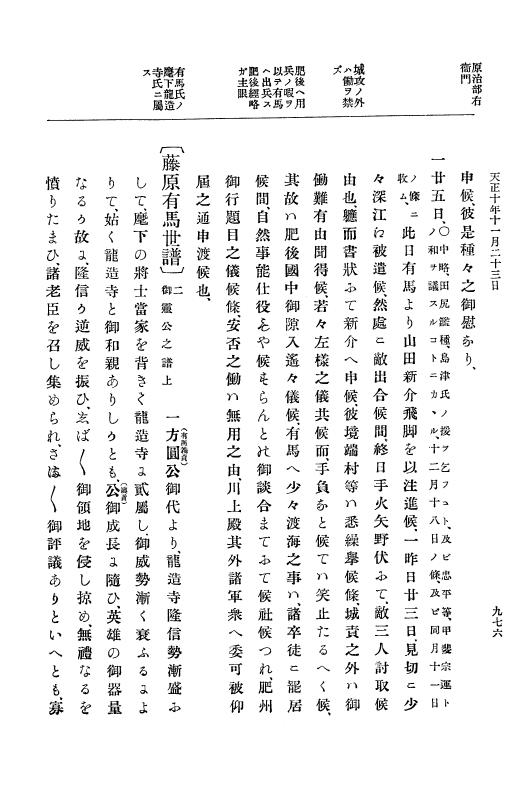 天正十年十一月二十三日
九七六
原治部右
衞門
城攻ノ外
ハ働ヲ禁
ズ
肥後へ用
兵ノ暇ヲ
以テ有馬
へ出兵ス
肥後經略
ガ主眼
有馬氏ノ
麾下龍造
寺氏ニ屬
ス
申候、彼是種々之御慰かり、
一廿五日、〇中略、田尻鑑種、島津氏ノ援ヲ乞フコト、及ビ忠平等、甲斐宗運ト
ノ和ヲ議スルコトニカヽル、十二月十八日ノ條及ビ同月十一日
ノ條ニ
收ム、此日有馬より山田新介飛脚を以注進候、一昨日廿三日、見切ニ少
々深江ゟ被遣候、然處ニ敵出合候間、終日手火矢野伏ふて、敵三人討取候
由也、軈而書狀ふて新介へ申候、彼境端村等ハ悉繰擧候條、城責之外ハ御
働難有由聞得候、若々左樣之儀共候而、手負あと候てハ笑止たるへく候、
其故ハ肥後國中御隙入遙々儀候、有馬へ少々渡海之事ハ、諸卒徒ニ罷居
候間、自然事能仕役とや候もらんと此御談合まてふて候社候つれ、肥州
御行題目之儀候條、安否之働ハ無用之由、川上殿其外諸軍衆へ委可被仰
屆之通申渡候也、
〔藤原有馬世譜〕二 御靈公之譜上 一方圓公(有馬義貞)御代より、龍造寺隆信勢漸盛ふ
して、麾下の將士當家を背きて龍造寺ゟ貳屬し、御威勢漸く衰ふるゟよ
りて、姑く龍造寺と御和親ありしうとも、公(鎭貴)御成長ゟ隨ひ、英雄の御器量
なるう故ゟ、隆信う逆威を振ひ、志ば〱御領地を侵し掠め、無禮なるを
憤りたまひ諸老臣を召し集められ、さま〱御評議ありといへとも、寡